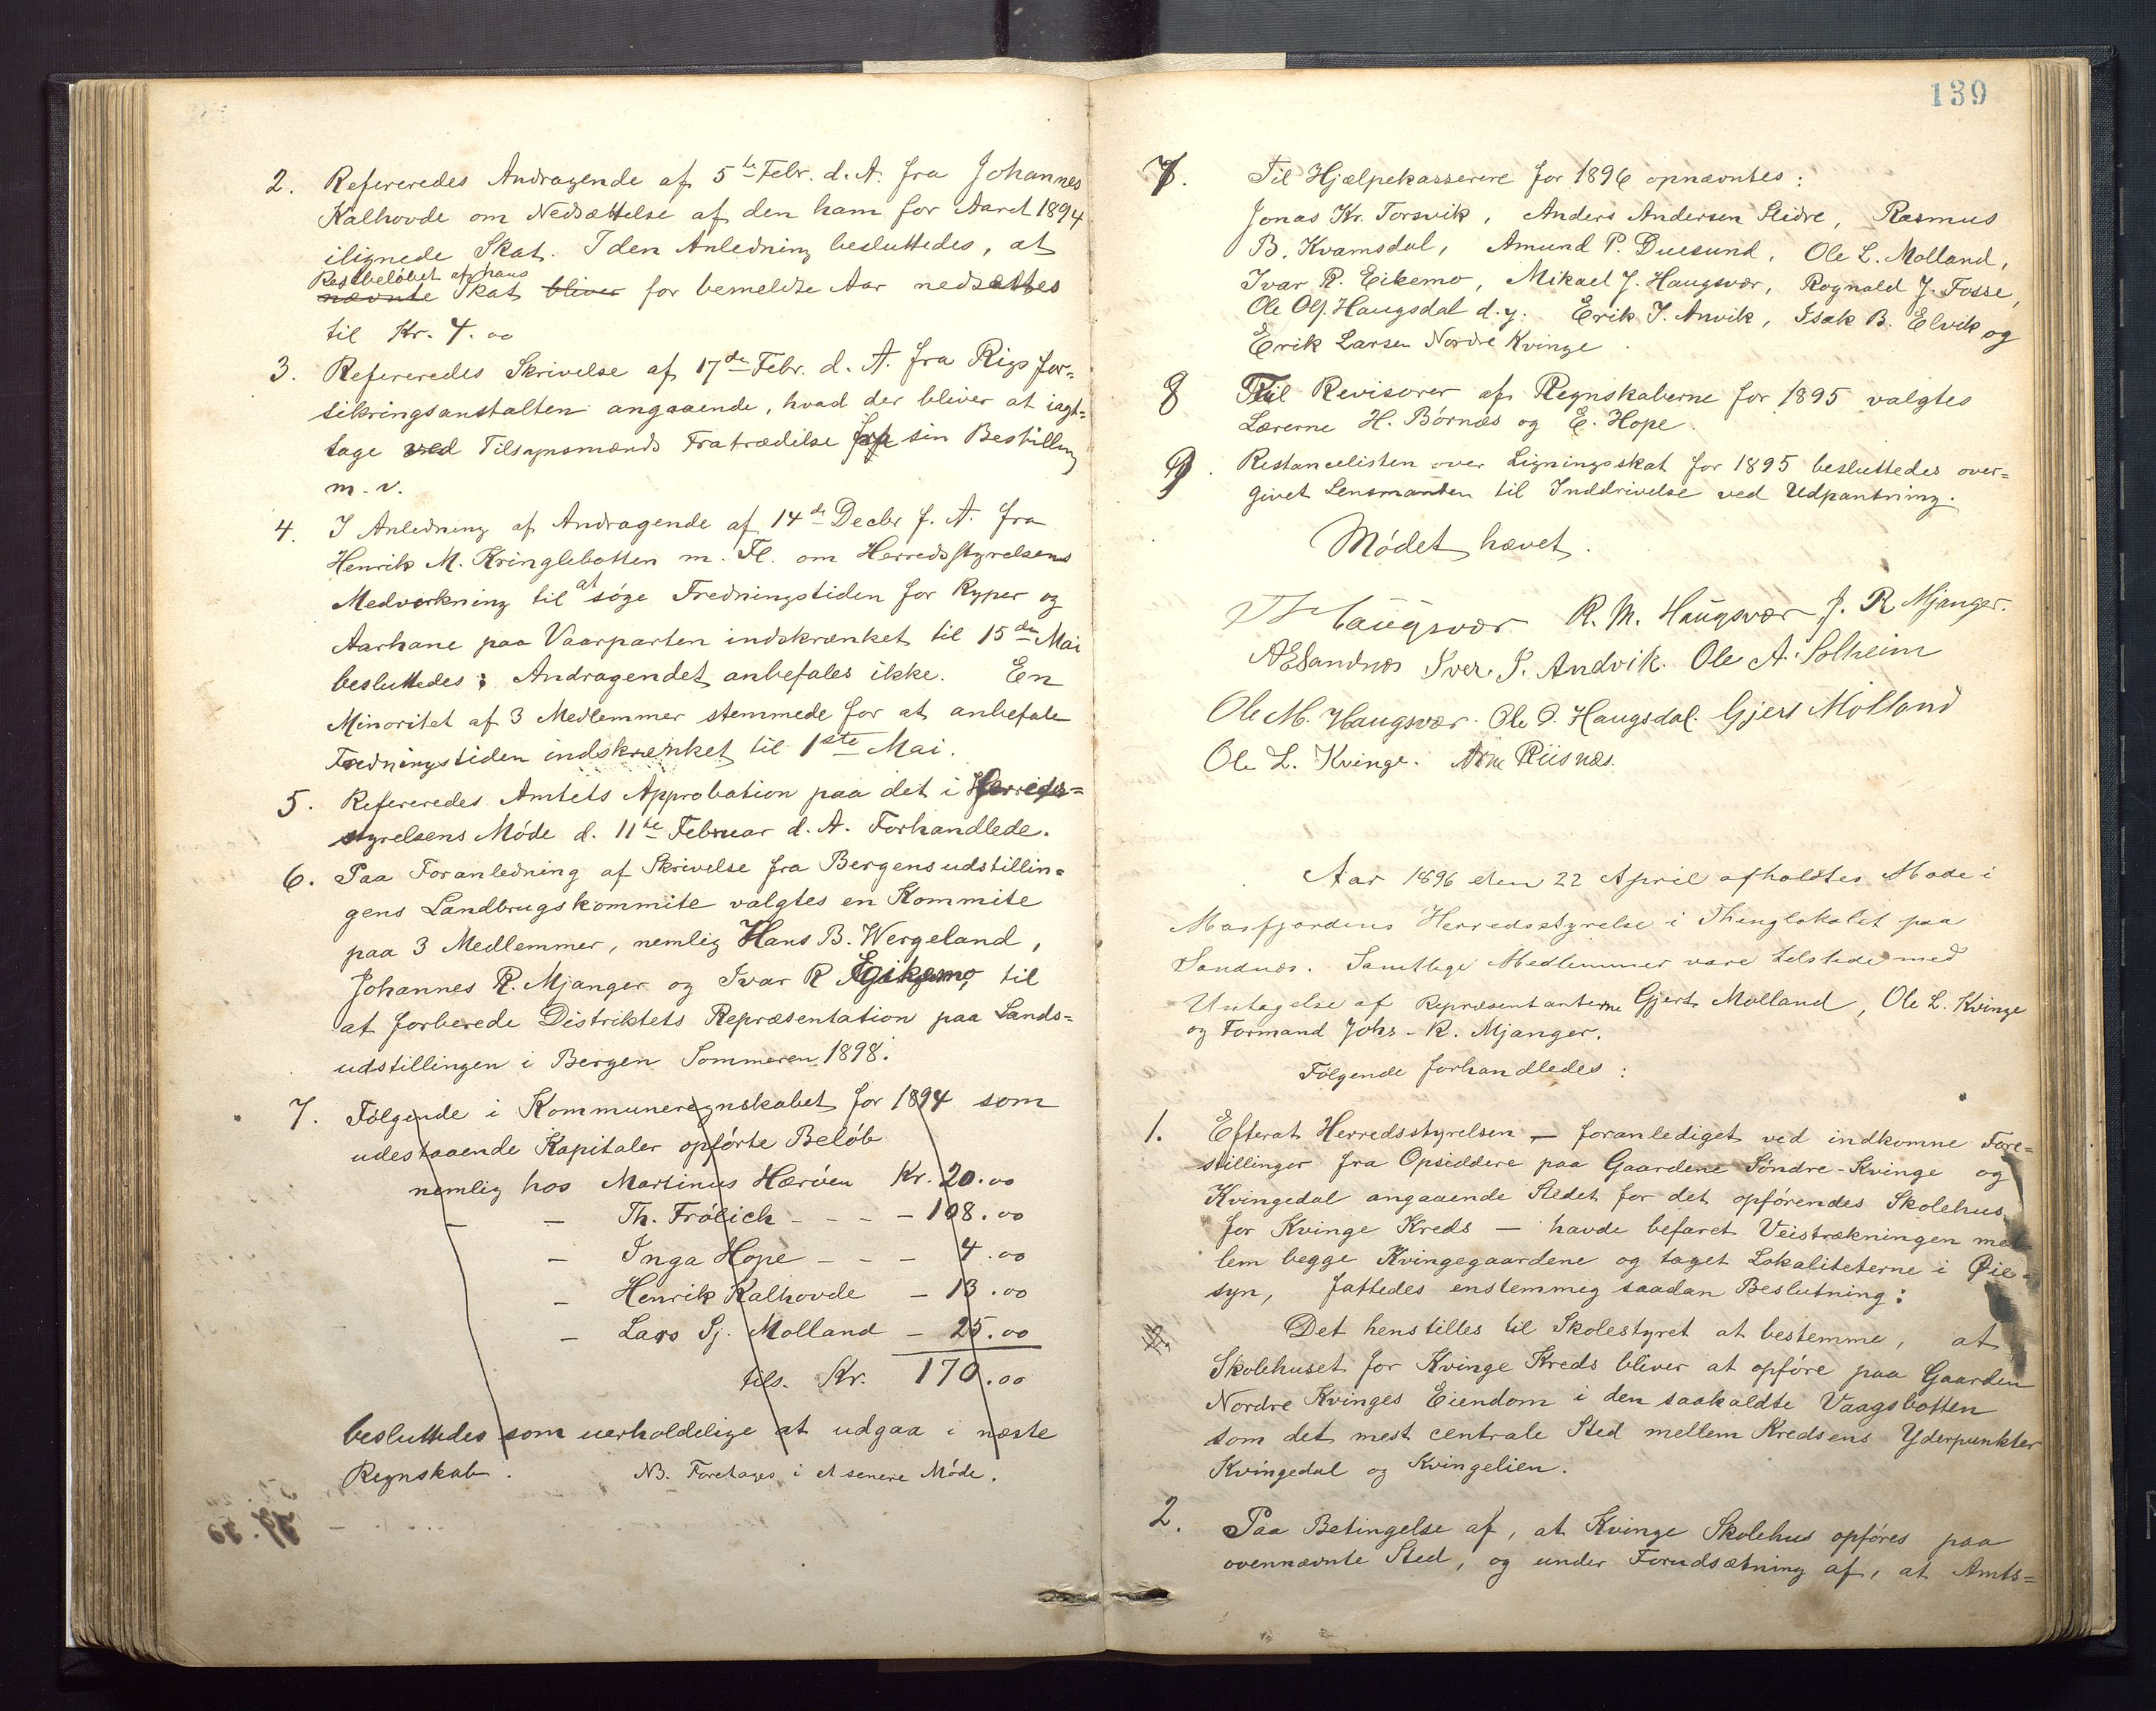 2. Refereredes Andragende af 5te Febr. d. A. fra Johannes
Kalhovde om Nedsættelse af den ham for Aaret 1894
ilignede Skat. I den Anledning besluttedes, at
Restbeløbet af hans
nævnte Skat bliver for bemeldte Aar nedsættes
til Kr. 4.00
3. Refereredes Skrivelse af 17de Febr. d. A. fra Rigsfor=
sikringsanstalten angaaende, hvad der bliver at iagt=
tage ved Tilsynsmænds Fratrædelse fra sin Bestilling
m.v.
4. I Anledning af Andragende af 14de Decbr f. A. fra
Henrik M. Kringlebotten m. Fl. om Herredsstyrelsens
Medvirkning til at søge Fredningstiden for Ryper og
Aarhane paa Vaarparten indskrænket til 15den Mai
besluttedes: Andragendet anbefales ikke. En
Minoritet af 3 Medlemmer stemmede for at anbefale
Fredningstiden indskrænket til 1ste Mai.
5. Refereredes Amtets Approbation paa det i Herreds=
styrelsens Møde d. 11te Februar d. A. Forhandlede.
6. Paa Foranledning af Skrivelse fra Bergensudstillin=
gens Landbrugskommite valgtes en Kommite
paa 3 Medlemmer, nemlig Hans B. Wergeland,
Johannes R. Mjanger og Ivar R Eikemo, til
at forberede Distriktets Repræsentation paa Lands=
udstillingen i Bergen Sommeren 1898.
7. Følgende i Kommuneregnskabet for 1894 som
udestaaende Kapitaler opførte Beløb
nemlig hos Martinus Hærøen Kr. 20.00
– – Th. Frølich - - - – 108.00
– Inga Hope - - – 4.00
– Henrik Kalhovde – 13.00
– Lars Sj. Molland – 25.00
tils. Kr. 170.00
besluttedes som uerholdelige at udgaa i næste
Regnskab. NB. Foretages i et senere Møde.
139
7. Til Hjælpekasserere for 1896 opnævntes:
Jonas Kr. Torsvik, Anders Andersen Sleire, Rasmus
B. Kvamsdal, Amund P. Duesund, Ole L. Molland,
Ivar R. Eikemo, Mikael J. Haugsvær, Rognald J. Fosse,
Ole Olf. Haugsdal d.y. Erik I. Anvik, Isak B. Elvik og
Erik Larsen Nordre Kvinge.
8 Til Revisorer af Regnskaberne for 1895 valgtes
Lærerne H. Børnæs og E. Hope.
9. Restancelisten over Ligningsskat for 1895 besluttedes over=
givet Lensmanden til Inddrivelse ved Udpantning.
Mødet hævet.
Haugsvær R. M. Haugsvær J. R Mjanger.
A E Sandnæs Iver. I. Andvik. Ole A. Solheim
Ole M. Haugsvær. Ole O. Haugsdal. Gjert Molland
Ole L. Kvinge. Arne Riisnæs.
Aar 1896 den 22 April afholdtes Møde i
Masfjordens Herredsstyrelse i Thinglokalet paa
Sandnæs. Samtlige Medlemmer vare tilstede med
Untagelse af Repræsentanterne Gjert Molland, Ole L. Kvinge
og Formand Johs. R. Mjanger.
Følgende forhandledes:
1. Efterat Herredsstyrelsen – foranlediget ved indkomne Fore=
stillinger fra Opsiddere paa Gaardene Søndre-Kvinge og
Kvingedal angaaende Stedet for det opførendes Skolehus
for Kvinge Kreds – havde befaret Veistrækningen mel=
lem begge Kvingegaardene og taget Lokaliteterne i Øie=
syn, fattedes enstemmig saadan Beslutning:
Det henstilles til Skolestyret at bestemme, at
Skolehuset for Kvinge Kreds bliver at opføre paa Gaarden
Nordre Kvinges Eiendom i den saakaldte Vaagsbotten
som det mest centrale Sted mellem Kredsens Yderpunkter
Kvingedal og Kvingelien.
2. Paa Betingelse af, at Kvinge Skolehus opføres paa
ovennævnte Sted, og under Forudsætning af, at Amts=